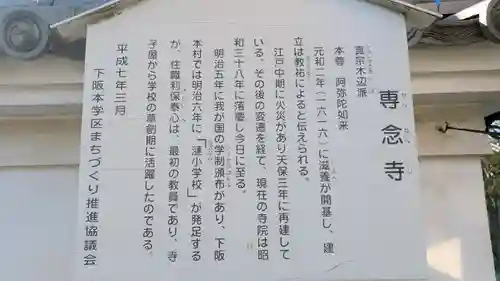 専念寺
せんねんじ
真宗木辺派
本尊 阿弥陀如来
元和二年(一六一六)に滋養が開基し、建
立は教祐によると伝えられる。
江戸中期に火災があり天保三年に再建して
いる。その後の変遷を経て、現在の寺院は昭
和三十八年に落慶し今日に至る。
明治五年に我が国の学制頒布があり、下阪
本村では明治六年に「漣小学校」が発足する
が、住職利保泰心は、最初の教員であり、寺
子屋から学校の草創期に活躍したのである。
平成七年三月
下阪本学区まちづくり推進協議会